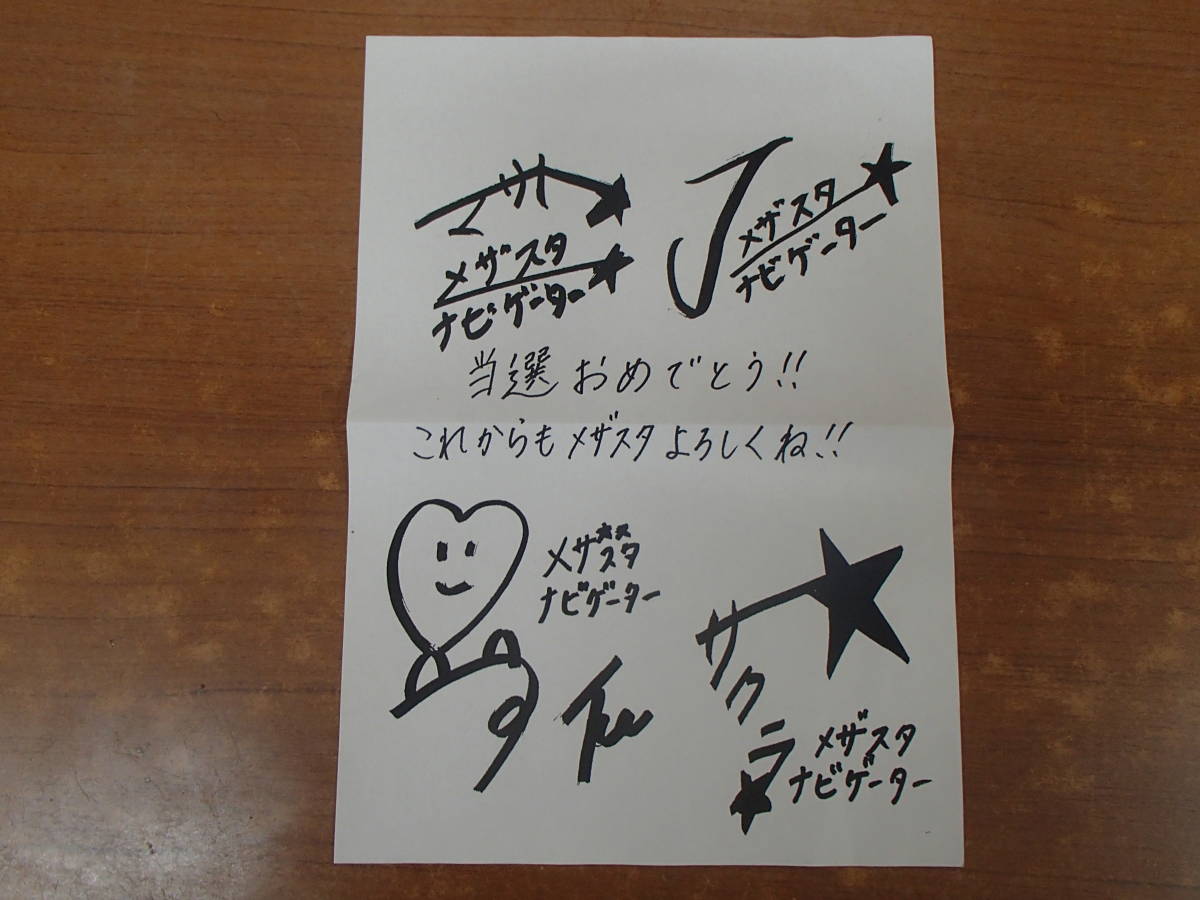 マサ
メザスタ
ナビゲーター
J
メザスタ
ナビゲーター
当選おめでとう!!
これからもメザスタよろしくね!!
メザスタ
ナビゲーター
サクラ
メザスタ
ナビゲーター